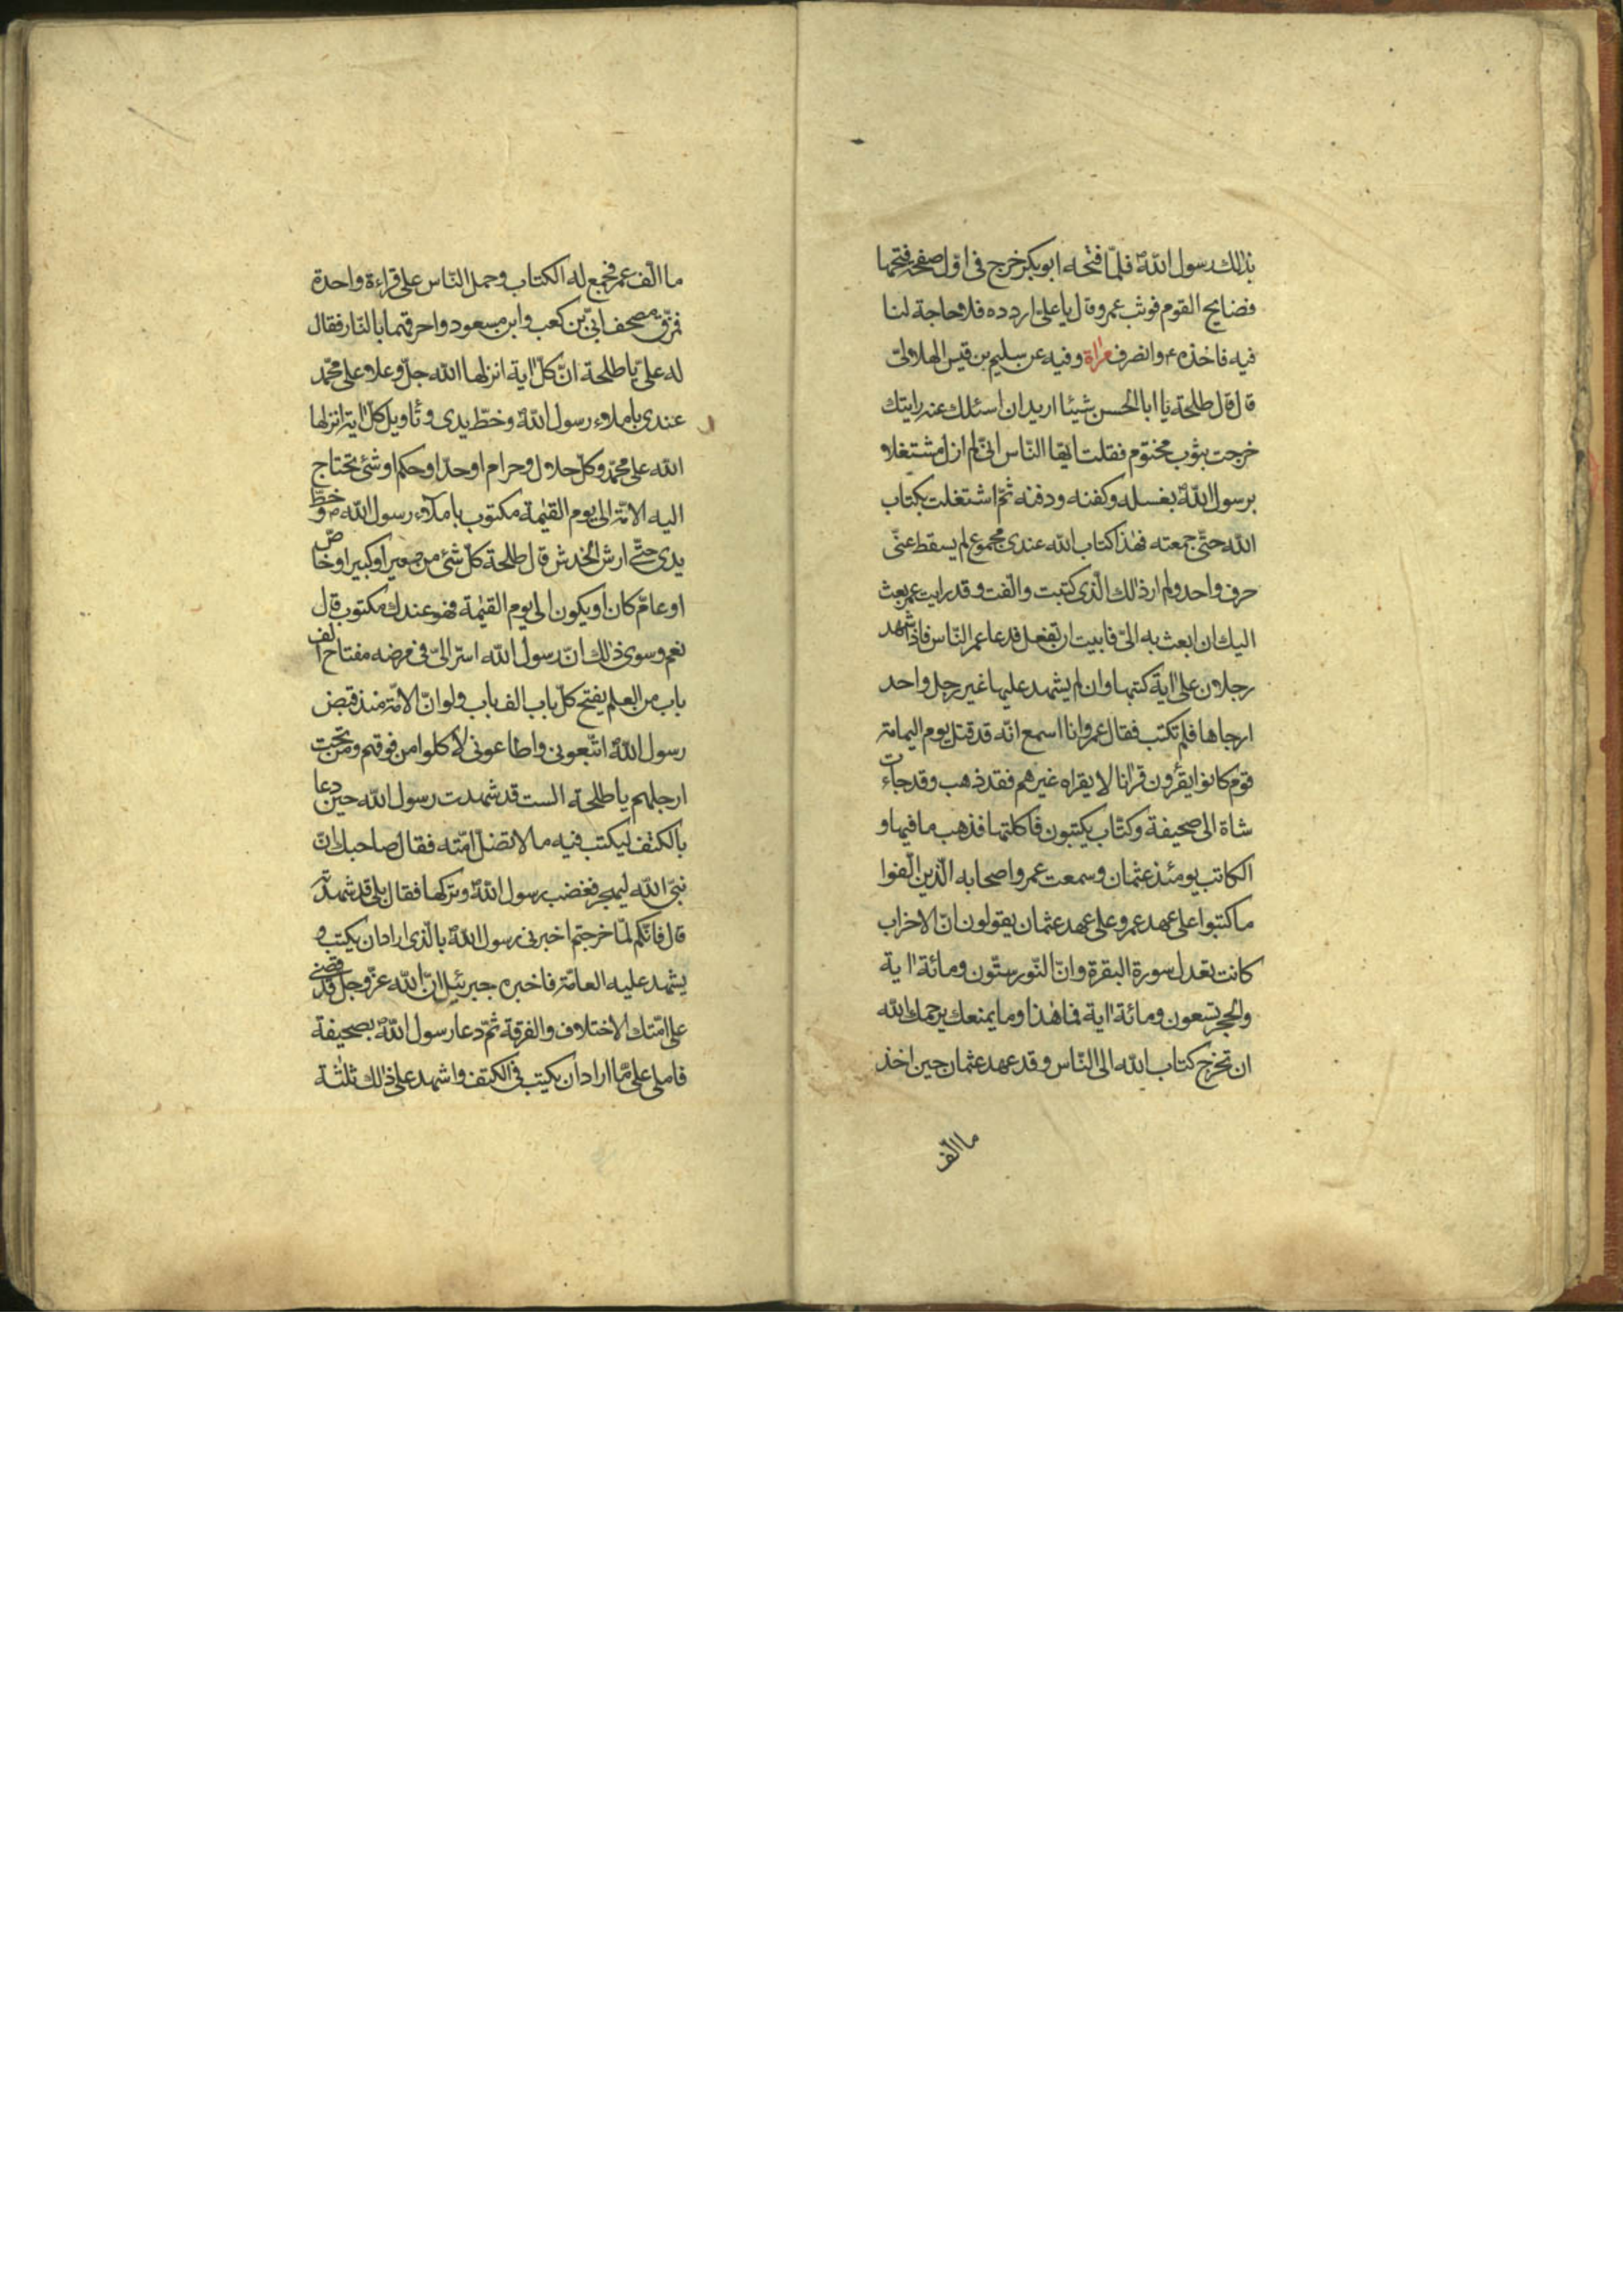 بذلك رسول اللّه فلمّا فتحه ابو بكر خرج فى اوّل صفحة فتحها
فضايح القوم فوثب عمر وقال يا على اردده فلا حاجة لنا
فيه فاخذه ع وانصرف وفيه عن سليم بن قيس الهلالى
قال قال طلحة يا ابا الحسن شيئا اريد ان اسئلك عنه رايتك
خرجت بثوب مختوم فقلت ايّها النّاس انّى لم ازل مشتغلا
برسول اللّه بغسله وكفنه ودفنه ثمّ اشتغلت بكتاب
اللّه حتّى جمعته فهذا كتاب اللّه عندى مجموع لم يسقط عنّى
حرف واحد ولم ار ذلك الّذى كتبت والّفت وقد رايت عمر بعث
اليك ان ابعث به الىّ فابيت ان تفعل فدعا عمر النّاس فاذا شهد
رجلان على اية كتبها وان لم يشهد عليها غير رجل واحد
ارجاها فلم تكتب فقال عمر وانا اسمع انّه قد قتل يوم اليمامة
قوم كانوا يقرؤن قرانا لا يقراه غيرهم فقد ذهب وقد جاءت
شاة الى صحيفة وكتّاب يكتبون فاكلتها فذهب ما فيها و
الكاتب يومئذ عثمان وسمعت عمر واصحابه الّذين الّفوا
ما كتبوا على عهد عمر وعلى عهد عثمان يقولون انّ الاحزاب
كانت تعدل سورة البقرة وانّ النّور ستّون ومائة اية
والحجر تسعون ومائة اية فما هذا وما يمنعك يرحمك اللّه
ان تخرج كتاب اللّه الى النّاس وقد عهد عثمان حين اخذ
ما الّف
ما الّف عمر فجمع له الكتاب وحمل النّاس على قراءة واحدة
فمزّق مصحف ابىّ بن كعب وابن مسعود واحرقهما بالنّار فقال
له علىّ يا طلحة انّ كلّ اية انزلها اللّه جلّ وعلا على محمّد
عندى باملاء رسول اللّه وخطّ يدى وتأويل كلّ اية انزلها
اللّه على محمّد وكلّ حلال وحرام او حدّ او حكم او شئ تحتاج
اليه الامّة الى يوم القيمة مكتوب باملاء رسول اللّه ص وخطّ
يدى حتّى ارش الخدش قال طلحة كلّ شئ من صغير او كبير او خاصّ
او عامّ كان او يكون الى يوم القيمة فهو عندك مكتوب قال
نعم وسوى ذلك انّ رسول اللّه اسرّ الىّ فى مرضه مفتاح الف
باب من العلم يفتح كلّ باب الف باب ولو انّ الامّة منذ قبض
رسول اللّه اتّبعونى واطاعونى لأكلوا من فوقهم ومن تحت
ارجلهم يا طلحة الست قد شهدت رسول اللّه حين دعا
بالكتف ليكتب فيه ما لا تضلّ امّته فقال صاحبك انّ
نبىّ اللّه ليهجر فغضب رسول اللّه وتركها فقال بلى قد شهدته
قال فانّكم لمّا خرجتم اخبرنى رسول اللّه بالّذى اراد ان يكتب و
يشهد عليه العامّة فاخبره جبرئيل انّ اللّه عزّ وجلّ قد قضى
على امّتك الاختلاف والفرقة ثمّ دعا رسول اللّه بصحيفة
فاملى علىّ ما اراد ان يكتب فى الكتف واشهد على ذلك ثلثة